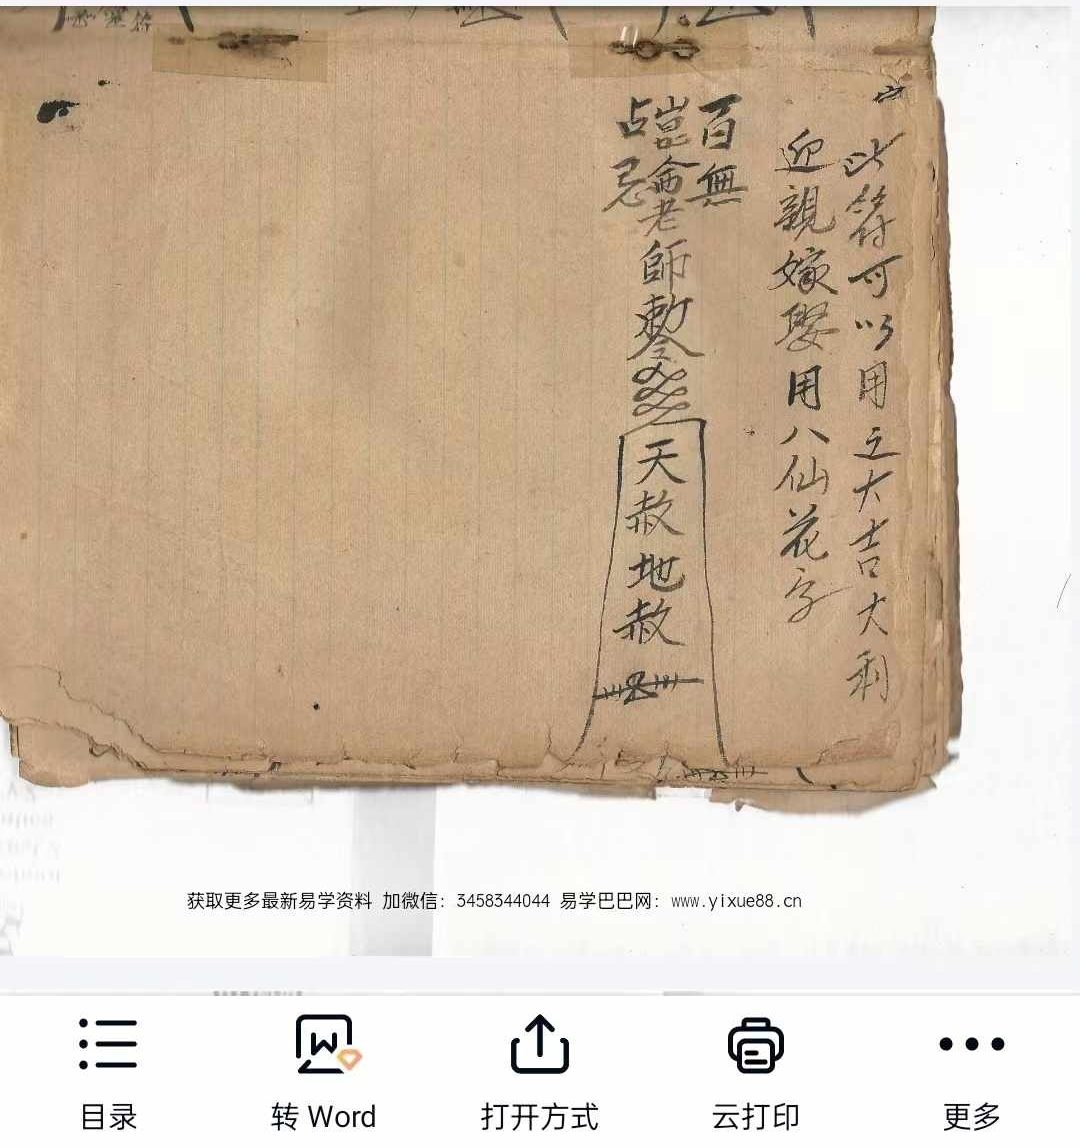 此符可以用之大吉大利
迎親嫁娶用八仙花字
百無
崑侖老師敕令
占忌
天赦地赦
获取更多最新易学资料 加微信: 3458344044 易学巴巴网: www.yixue88.cn
目录
转 Word
打开方式
云打印
更多